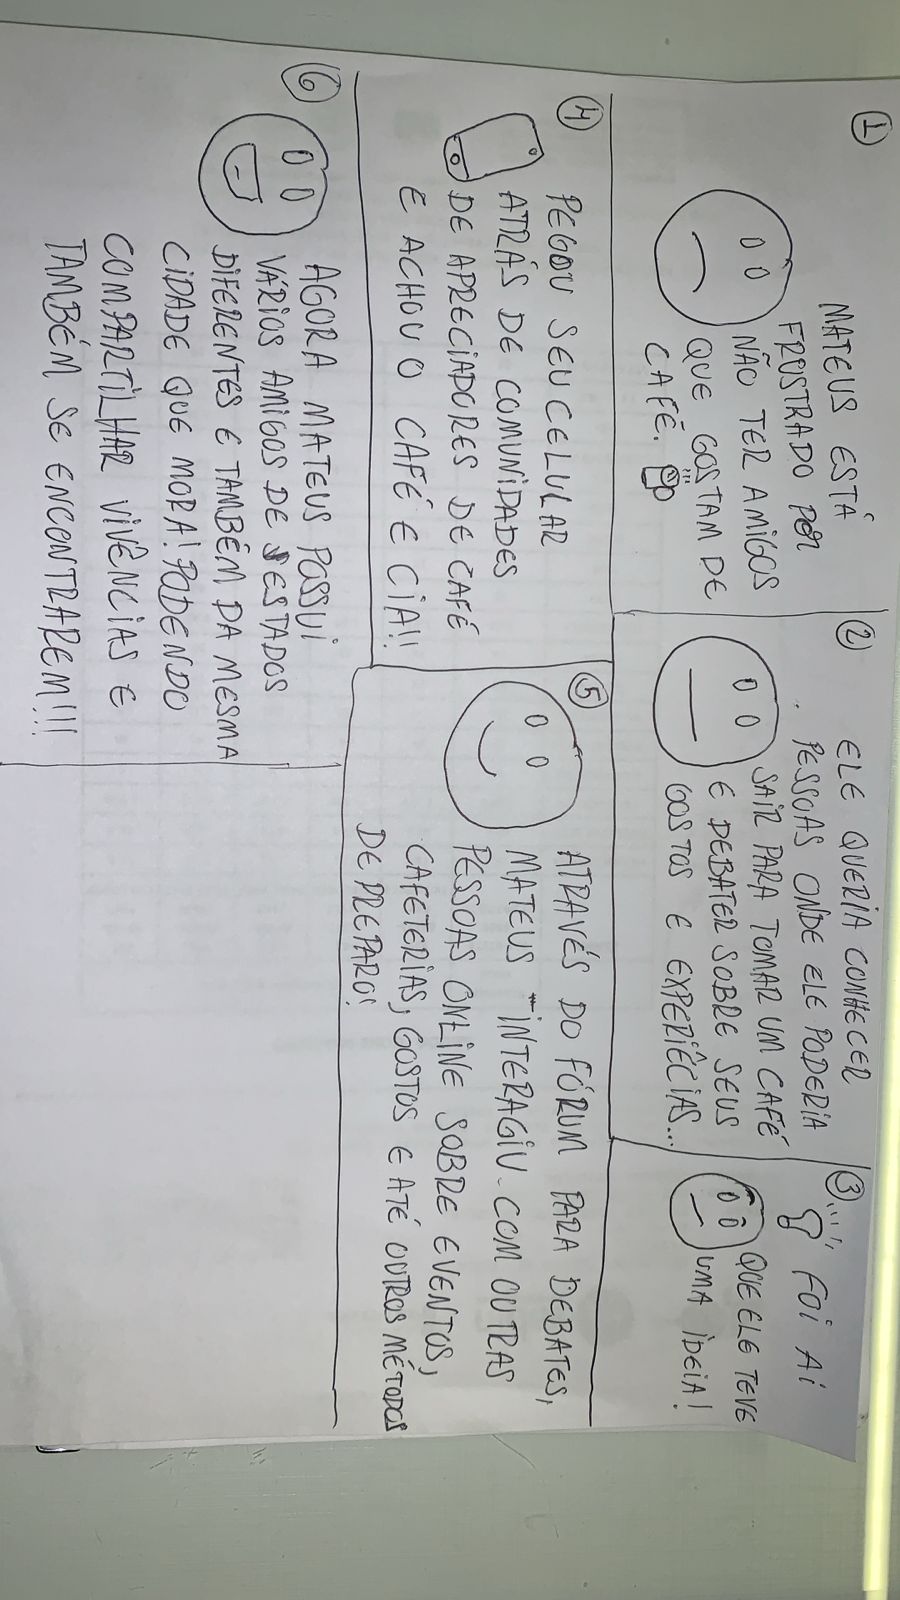 1
MATEUS ESTÁ
FRUSTRADO POR
NÃO TER AMIGOS
QUE GOSTAM DE
CAFÉ.
2
ELE QUERIA CONHECER
PESSOAS ONDE ELE PODERIA
SAIR PARA TOMAR UM CAFÉ
E DEBATER SOBRE SEUS
GOSTOS E EXPERIÊCIAS...
3
FOI AI
QUE ELE TEVE
UMA IDEIA!
4
PEGOU SEU CELULAR
ATRÁS DE COMUNIDADES
DE APRECIADORES DE CAFÉ
E ACHOU O CAFÉ E CIA!!
5
ATRAVÉS DO FÓRUM PARA DEBATES,
MATEUS INTERAGIU COM OUTRAS
PESSOAS ONLINE SOBRE EVENTOS,
CAFETERIAS, GOSTOS E ATÉ OUTROS MÉTODOS
DE PREPARO!
6
AGORA MATEUS POSSUI
VÁRIOS AMIGOS DE ESTADOS
DIFERENTES E TAMBÉM DA MESMA
CIDADE QUE MORA! PODENDO
COMPARTILHAR VIVÊNCIAS E
TAMBÉM SE ENCONTRAREM!!!